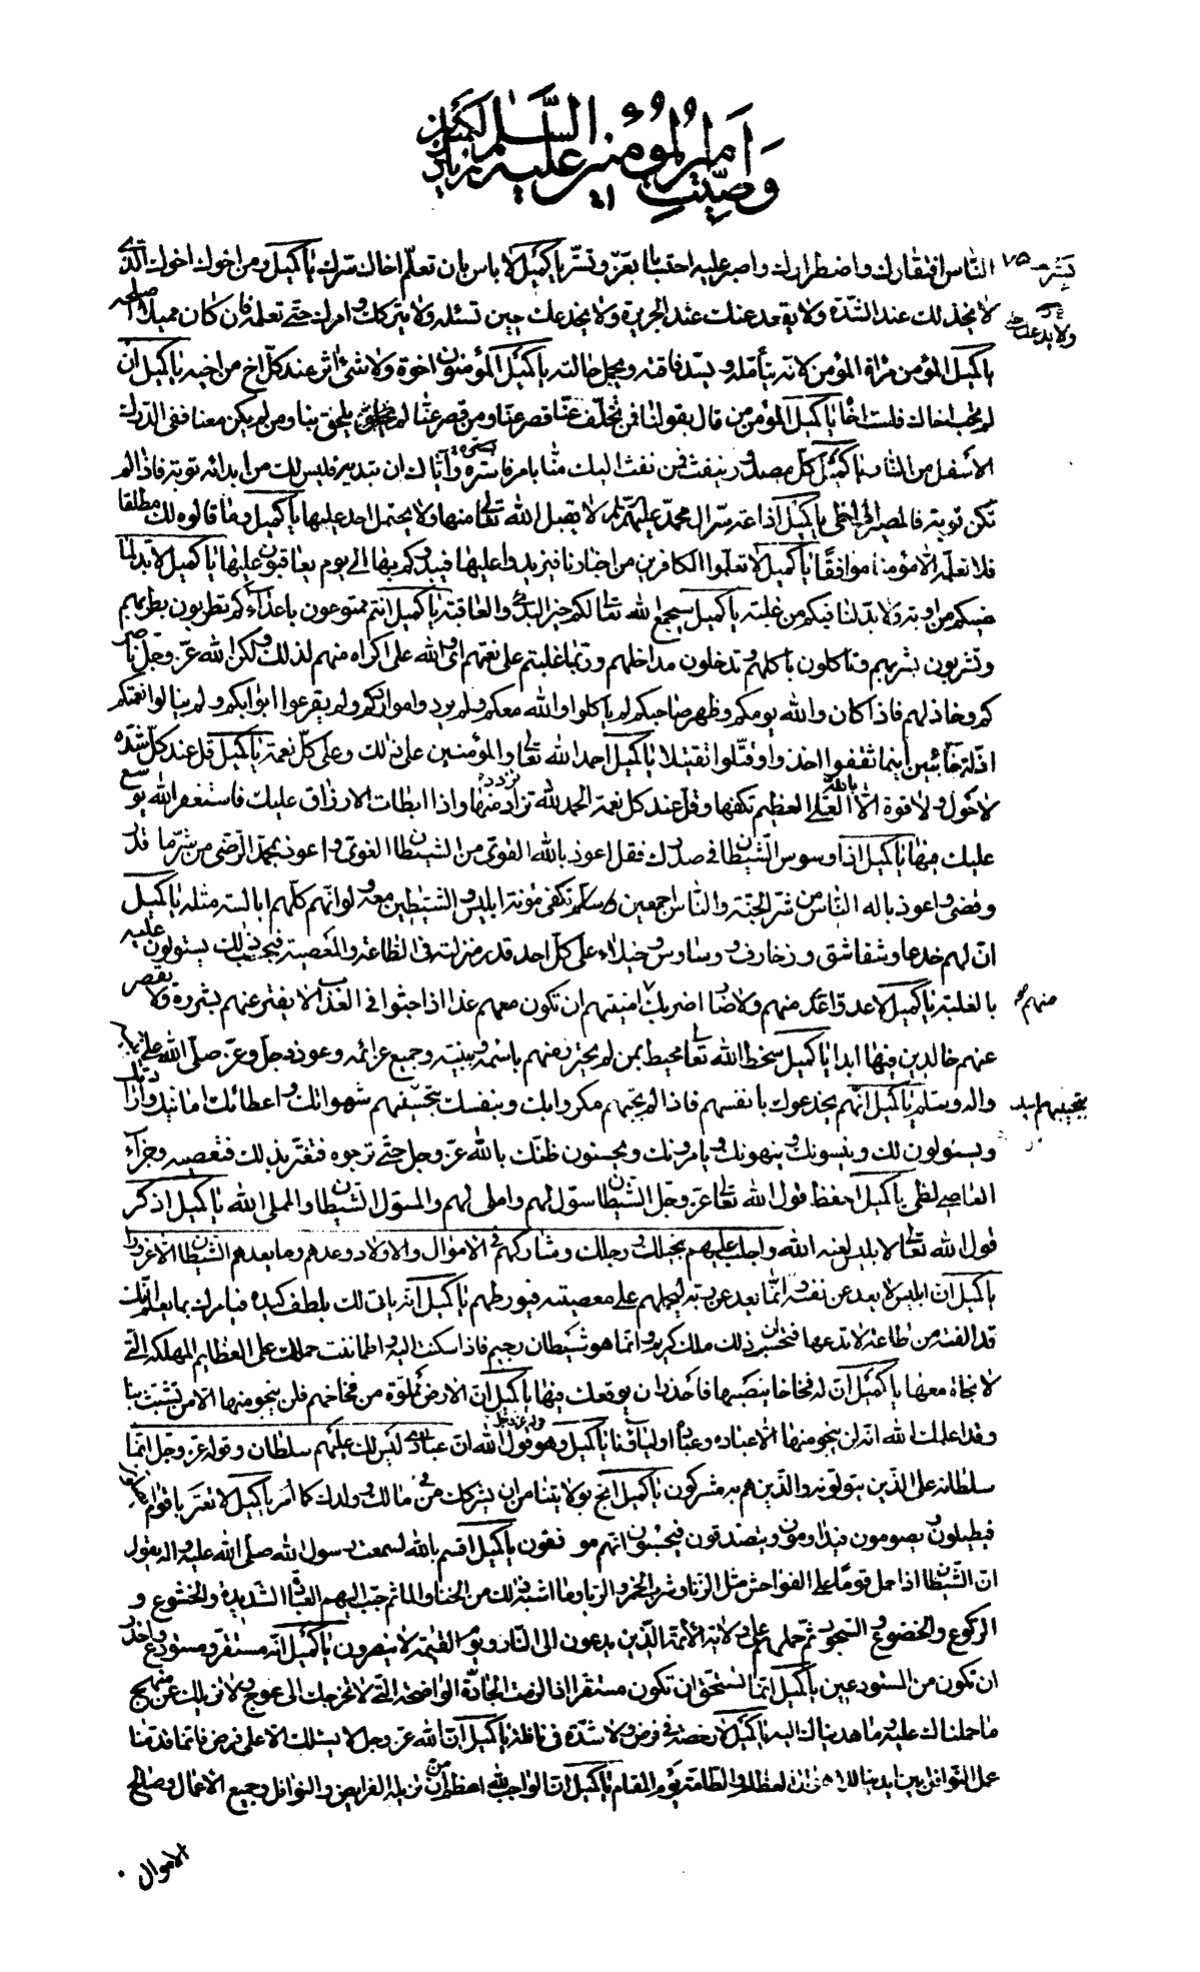 وصيت امير المؤمنين عليه السلام لكميل بن زياد
الناس افتقارك واضطرارك واصبر عليه احتسابا بعز وتستر يا كميل لا باس بان تعلم اخاك سرك يا كميل ومن اخوك اخوك الذى
لا يخذلك عند الشدة ولا يقعد عنك عند الجريرة ولا يخدعك حين تسئله ولا يتركك وامرك حتى تعلمه فان كان مميلا اصلحه
يا كميل المؤمن مراة المؤمن لانه يتأمله ويسد فاقته ويجمل حالته يا كميل المؤمنون اخوة ولا شئ اثر عند كل اخ من اخيه يا كميل ان
لم تحب اخاك فلست اخاه يا كميل المؤمن من قال بقولنا فمن تخلف عنا قصر عنا ومن قصر عنا لم يلحق بنا ومن لم يكن معنا ففى الدرك
الاسفل من النار يا كميل كل مصدور ينفث فمن نفث اليك منا بامر فاستره واياك ان تبديه فليس لك من ابدائه توبة فاذا لم
تكن توبة فالمصير الى لظى يا كميل اذاعة سر ال محمد عليهم السلام لا يقبل الله تعالى منها ولا يحتمل احد عليها يا كميل وما قالوه لك مطلقا
فلا تعلمه الا مؤمنا موافقا يا كميل لا تعلموا الكافرين من اخبارنا فيزيدوا عليها فيبدوكم بها الى يوم يعاقبون عليها يا كميل لا بد لما
ضيكم من اوبة ولا بد لنا فيكم من غلبة يا كميل سيجمع الله تعالى لكم خير البدء والعاقبة يا كميل انتم ممتوعون باعدائكم تطربون بطربهم
وتشربون بشربهم وتاكلون باكلهم وتدخلون مداخلهم وربما غلبتم على نعمتهم اى والله على اكراه منهم لذلك ولكن الله عز وجل ناصر
كم وخاذلهم فاذا كان والله يومكم وظهر صاحبكم لم ياكلوا والله معكم ولم يردوا مواردكم ولم يقرعوا ابوابكم ولم ينالوا نعمتكم
اذلة خائبين اينما ثقفوا اخذوا وقتلوا تقتيلا يا كميل احمد الله تعالى والمؤمنين على ذلك وعلى كل نعمة يا كميل قل عند كل شدة
لا حول ولا قوة الا بالله العلى العظيم تكفها وقل عند كل نعمة الحمد لله تزدد منها واذا ابطات الارزاق عليك فاستغفر الله يوسع
عليك منها يا كميل اذا وسوس الشيطان فى صدرك فقل اعوذ بالله القوى من الشيطان الغوى واعوذ بمحمد الرضى من شر ما قدر
وقضى واعوذ باله الناس من شر الجنة والناس اجمعين وسلم تكفى مؤنة ابليس والشياطين معه ولو انهم كلهم ابالسة مثله يا كميل
ان لهم خدعا وشقاشق وزخارف ووساوس وخيلاء على كل احد قدر منزلته فى الطاعة والمعصية فبحسب ذلك يستولون عليه
بالغلبة يا كميل لا عدو اعدى منهم ولا ضار اضر بك امنيتهم ان تكون معهم غدا اذا جثوا فى العذاب لا يفتر عنهم بشرره ولا يقصر
عنهم خالدين فيها ابدا يا كميل سخط الله تعالى محيط بمن لم يحترز منهم باسمه وبنبيه وجميع عزائمه وعوذه وجل وعز صلى الله على نبيه
واله وسلم يا كميل انهم يخدعوك بانفسهم فاذا لم تجبهم مكروا بك وبنفسك بتحبيبهم شهواتك واعطائك امانيك وارادتك
ويسولون لك وينسونك وينهونك ويامرونك ويحسنون ظنك بالله عز وجل حتى ترجوه فتغتر بذلك فتعصيه وجزاء
العاصى لظى يا كميل احفظ قول الله تعالى عز وجل الشيطان سول لهم واملى لهم والمسول الشيطان والمملى الله يا كميل اذكر
قول الله تعالى لابليس لعنه الله واجلب عليهم بخيلك ورجلك وشاركهم فى الاموال والاولاد وعدهم وما يعدهم الشيطان الا غرورا
يا كميل ان ابليس لا يعد عن نفسه انما يعد عن ربه ليحملهم على معصيته فيورطهم يا كميل انه ياتى لك بلطف كيده فيامرك بما يعلم انك
قد الفته من طاعة لا تدعها فتحسب ان ذلك ملك كريم وانما هو شيطان رجيم فاذا سكنت اليه واطماننت حملك على العظايم المهلكة التى
لا نجاة معها يا كميل ان له فخاخا ينصبها فاحذر ان يوقعك فيها يا كميل ان الارض مملوة من فخاخهم فلن ينجو منها الا من تشبث بنا
وقد اعلمك الله انه لن ينجو منها الا عباده وعباده اولياؤنا يا كميل وهو قول الله ان عبادى ليس لك عليهم سلطان وقوله عز وجل انما
سلطانه على الذين يتولونه والذين هم به مشركون يا كميل انج بولايتنا من ان يشركك فى مالك وولدك كما امر يا كميل لا تغتر باقوام يصلون
فيطيلون ويصومون فيداومون ويتصدقون فيحسبون انهم موفقون يا كميل اقسم بالله لسمعت رسول الله صلى الله عليه واله يقول
ان الشيطان اذا حمل قوما على الفواحش مثل الزنا وشرب الخمر والربا وما اشبه ذلك من الخنا والماثم حبب اليهم العبادة الشديدة والخشوع و
الركوع والخضوع والسجود ثم حملهم على ولاية الائمة الذين يدعون الى النار ويوم القيمة لا ينصرون يا كميل انه مستقر ومستودع واحذر
ان تكون من المستودعين يا كميل انما تستحق ان تكون مستقرا اذا لزمت الجادة الواضحة التى لا تخرجك الى عوج ولا تزيلك عن منهج
ما حملناك عليه وما هديناك اليه يا كميل لا رخصة فى فرض ولا شدة فى نافلة يا كميل ان الله عز وجل لا يسئلك الا على فرض فانما قدمنا
عمل النوافل بين ايدينا للاهوال العظام والطامة يوم المقام يا كميل ان الواجب لله اعظم من ان تزيله الفرايض والنوافل وجميع الاعمال وصالح
الاموال
منهم